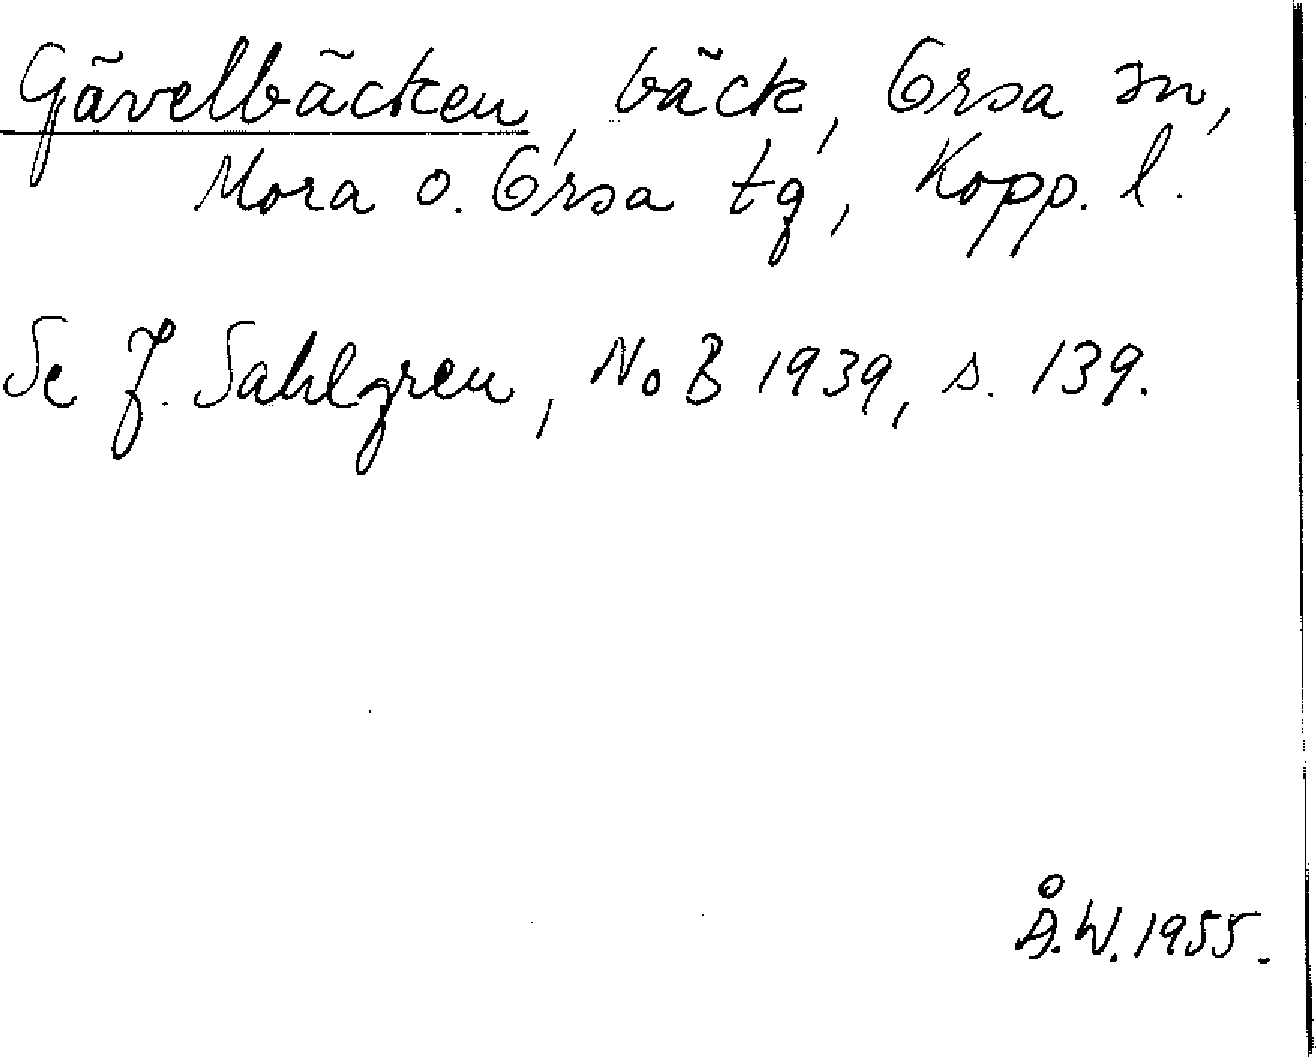 Gävelbäcken, bäck, Orsa sn,
Mora o. Orsa tg, Kopp. l.
Se J. Sahlgren, NoB 1939, s. 139.
Å.W. 1955.